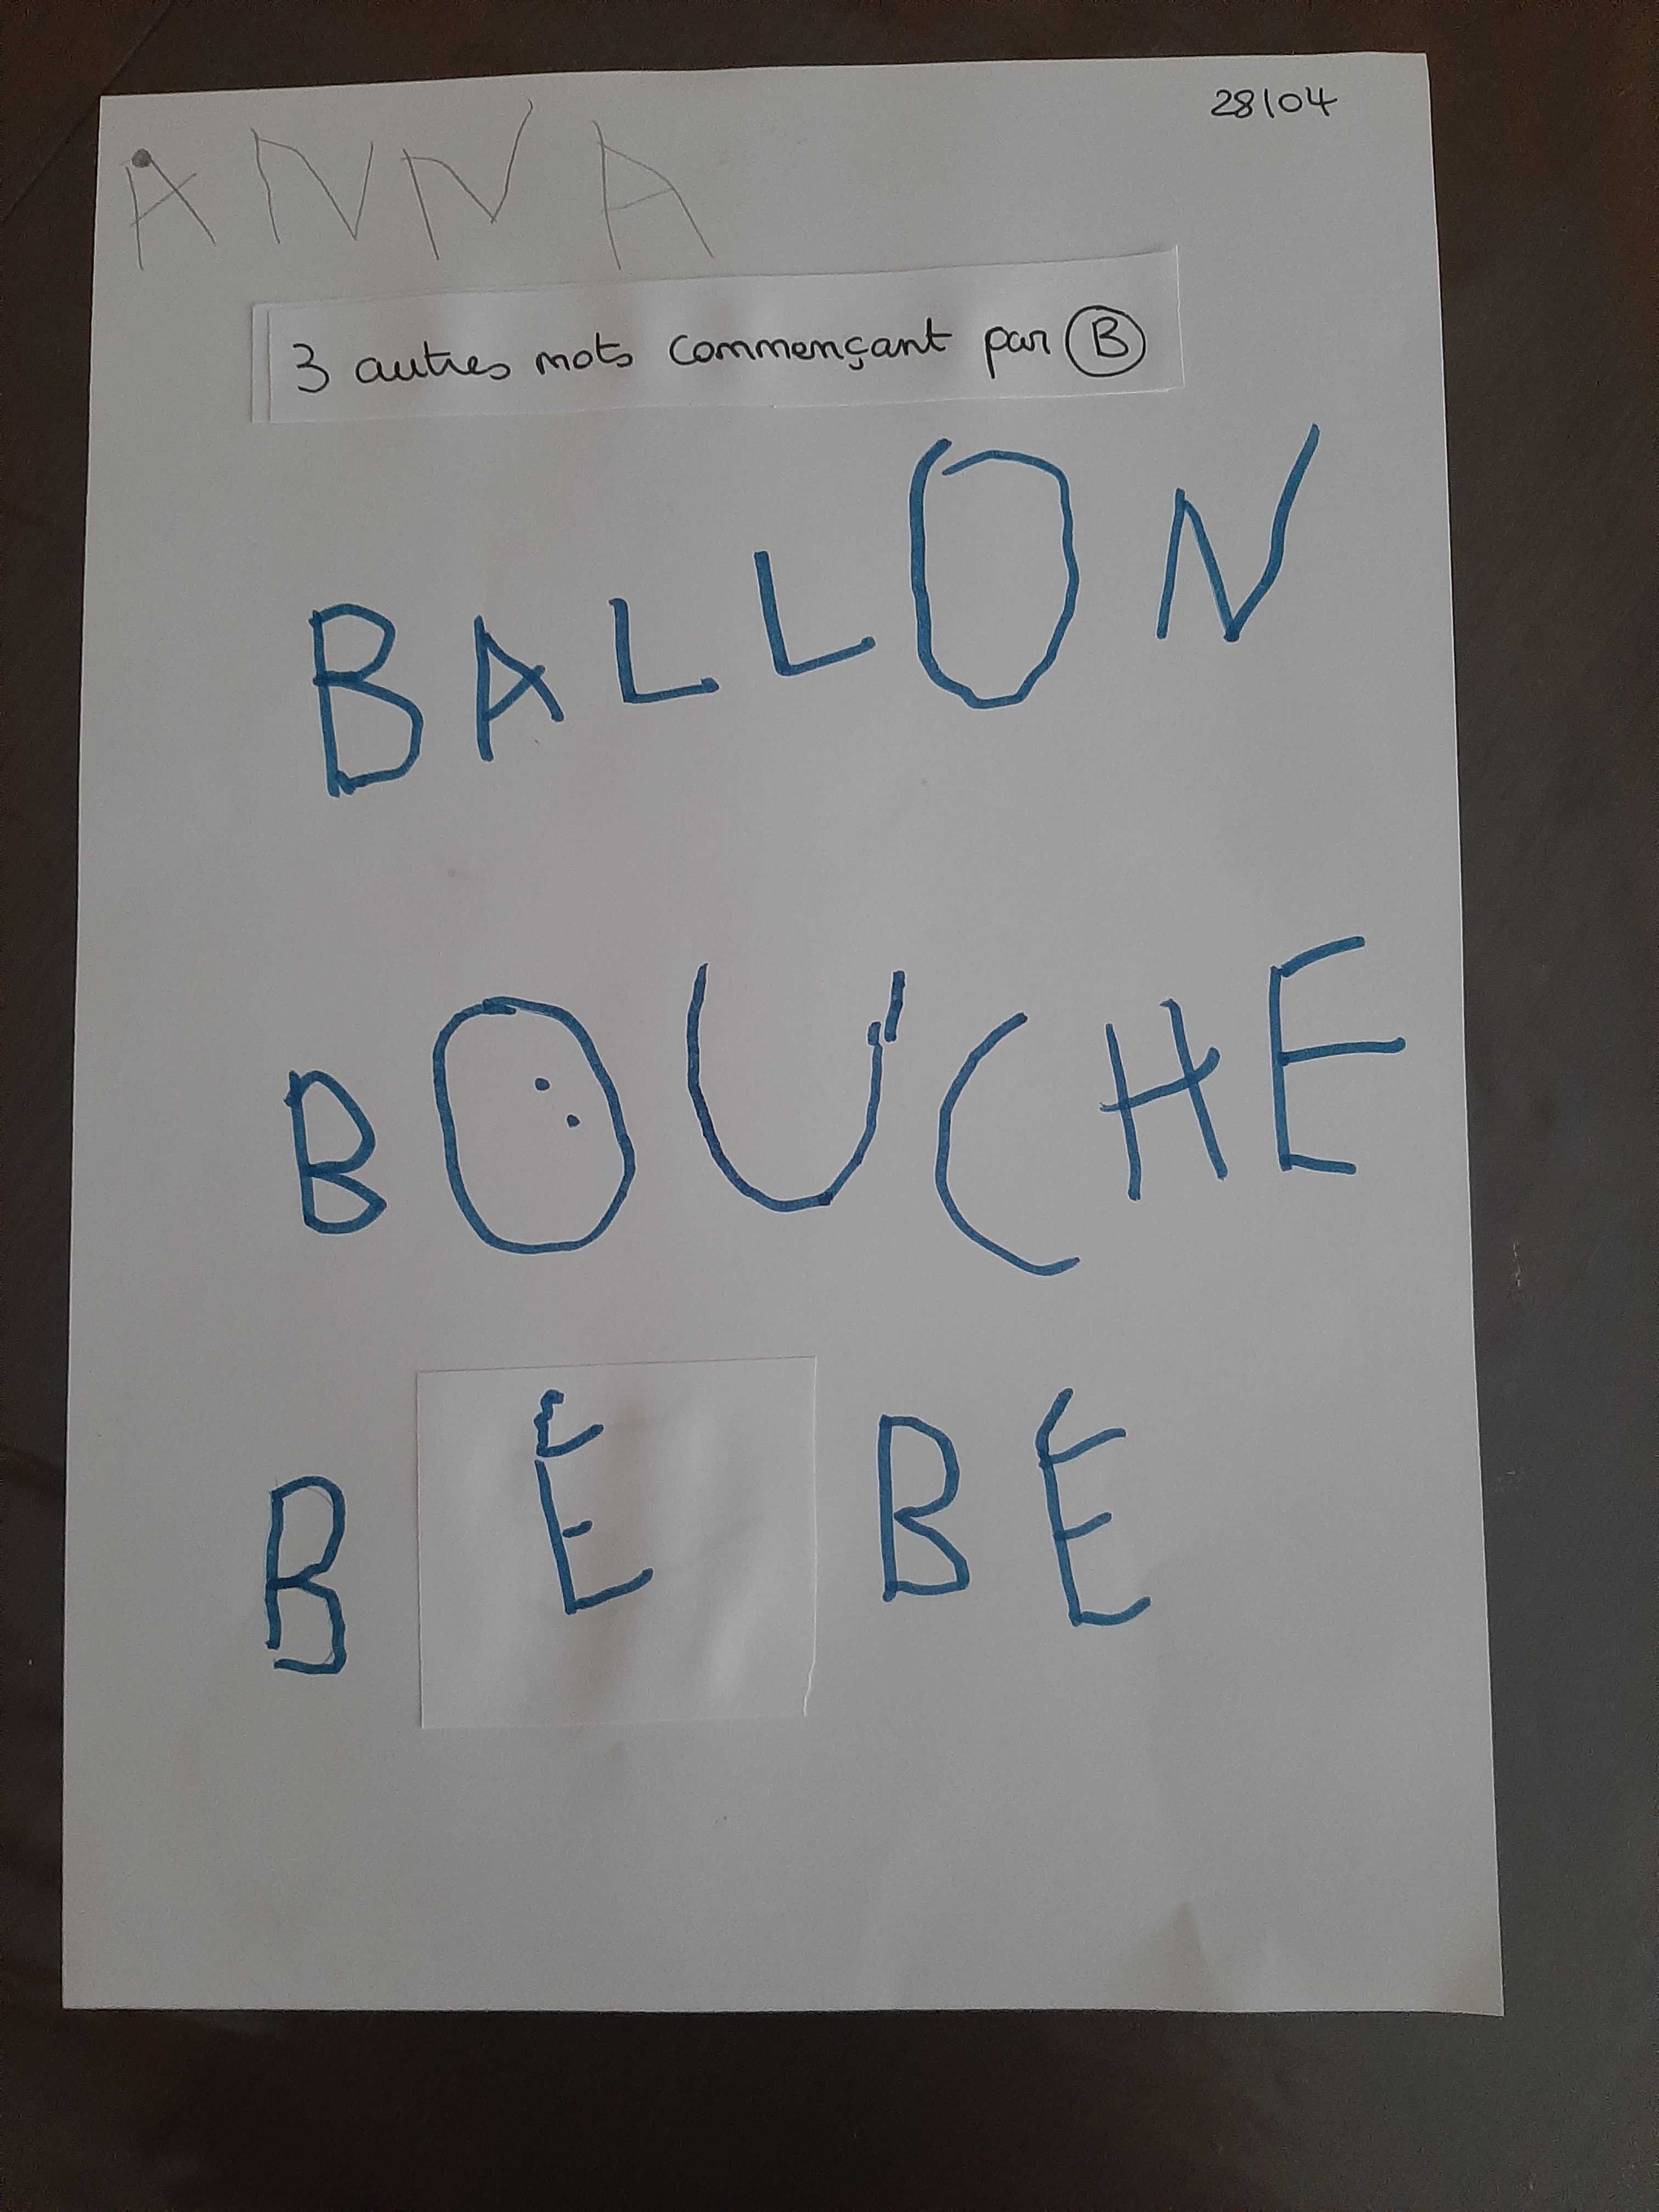 28/04
ANNA
3 autres mots commençant par B
BALLON
BOUCHE
BÉBÉ